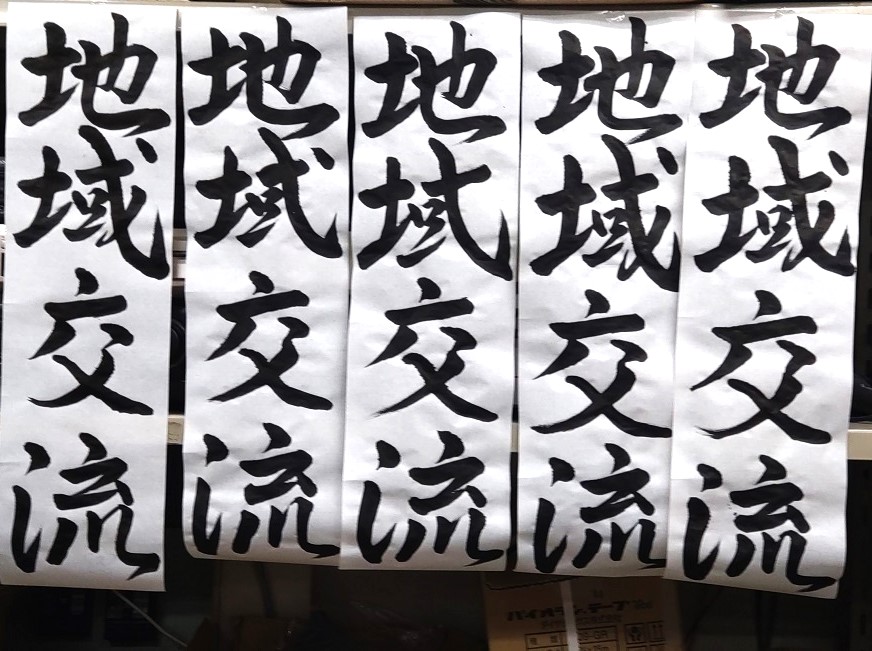 地域交流
地域交流
地域交流
地域交流
地域交流